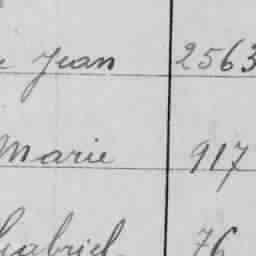 Jean 2563
Marie 917
Gabriel 76